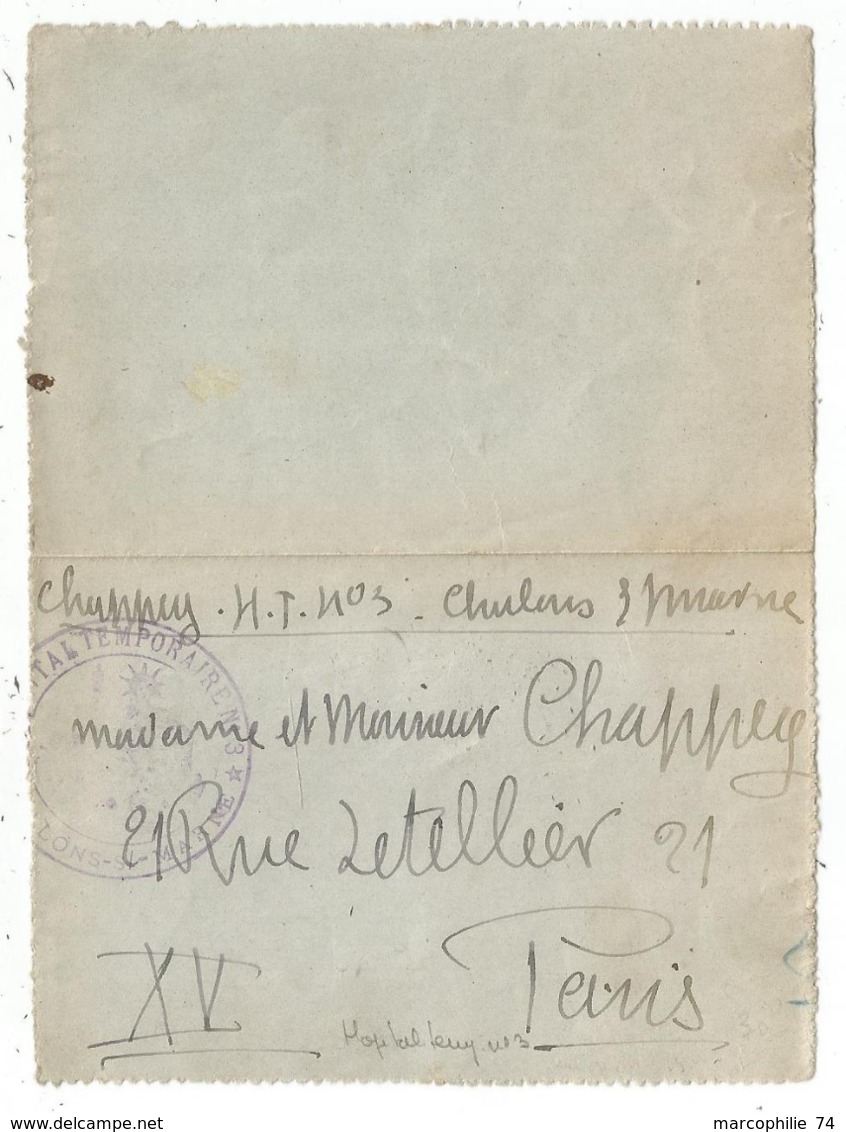 Chappey. H.T. No3 - Chalons s Marne
TAL TEMPORAIRE N° 3
LONS-S-MARNE
madame et Monsieur Chappey
21 Rue Letellier 21
XV Paris
Hopital temp. no 3
30
www.delcampe.net
marcophilie 74